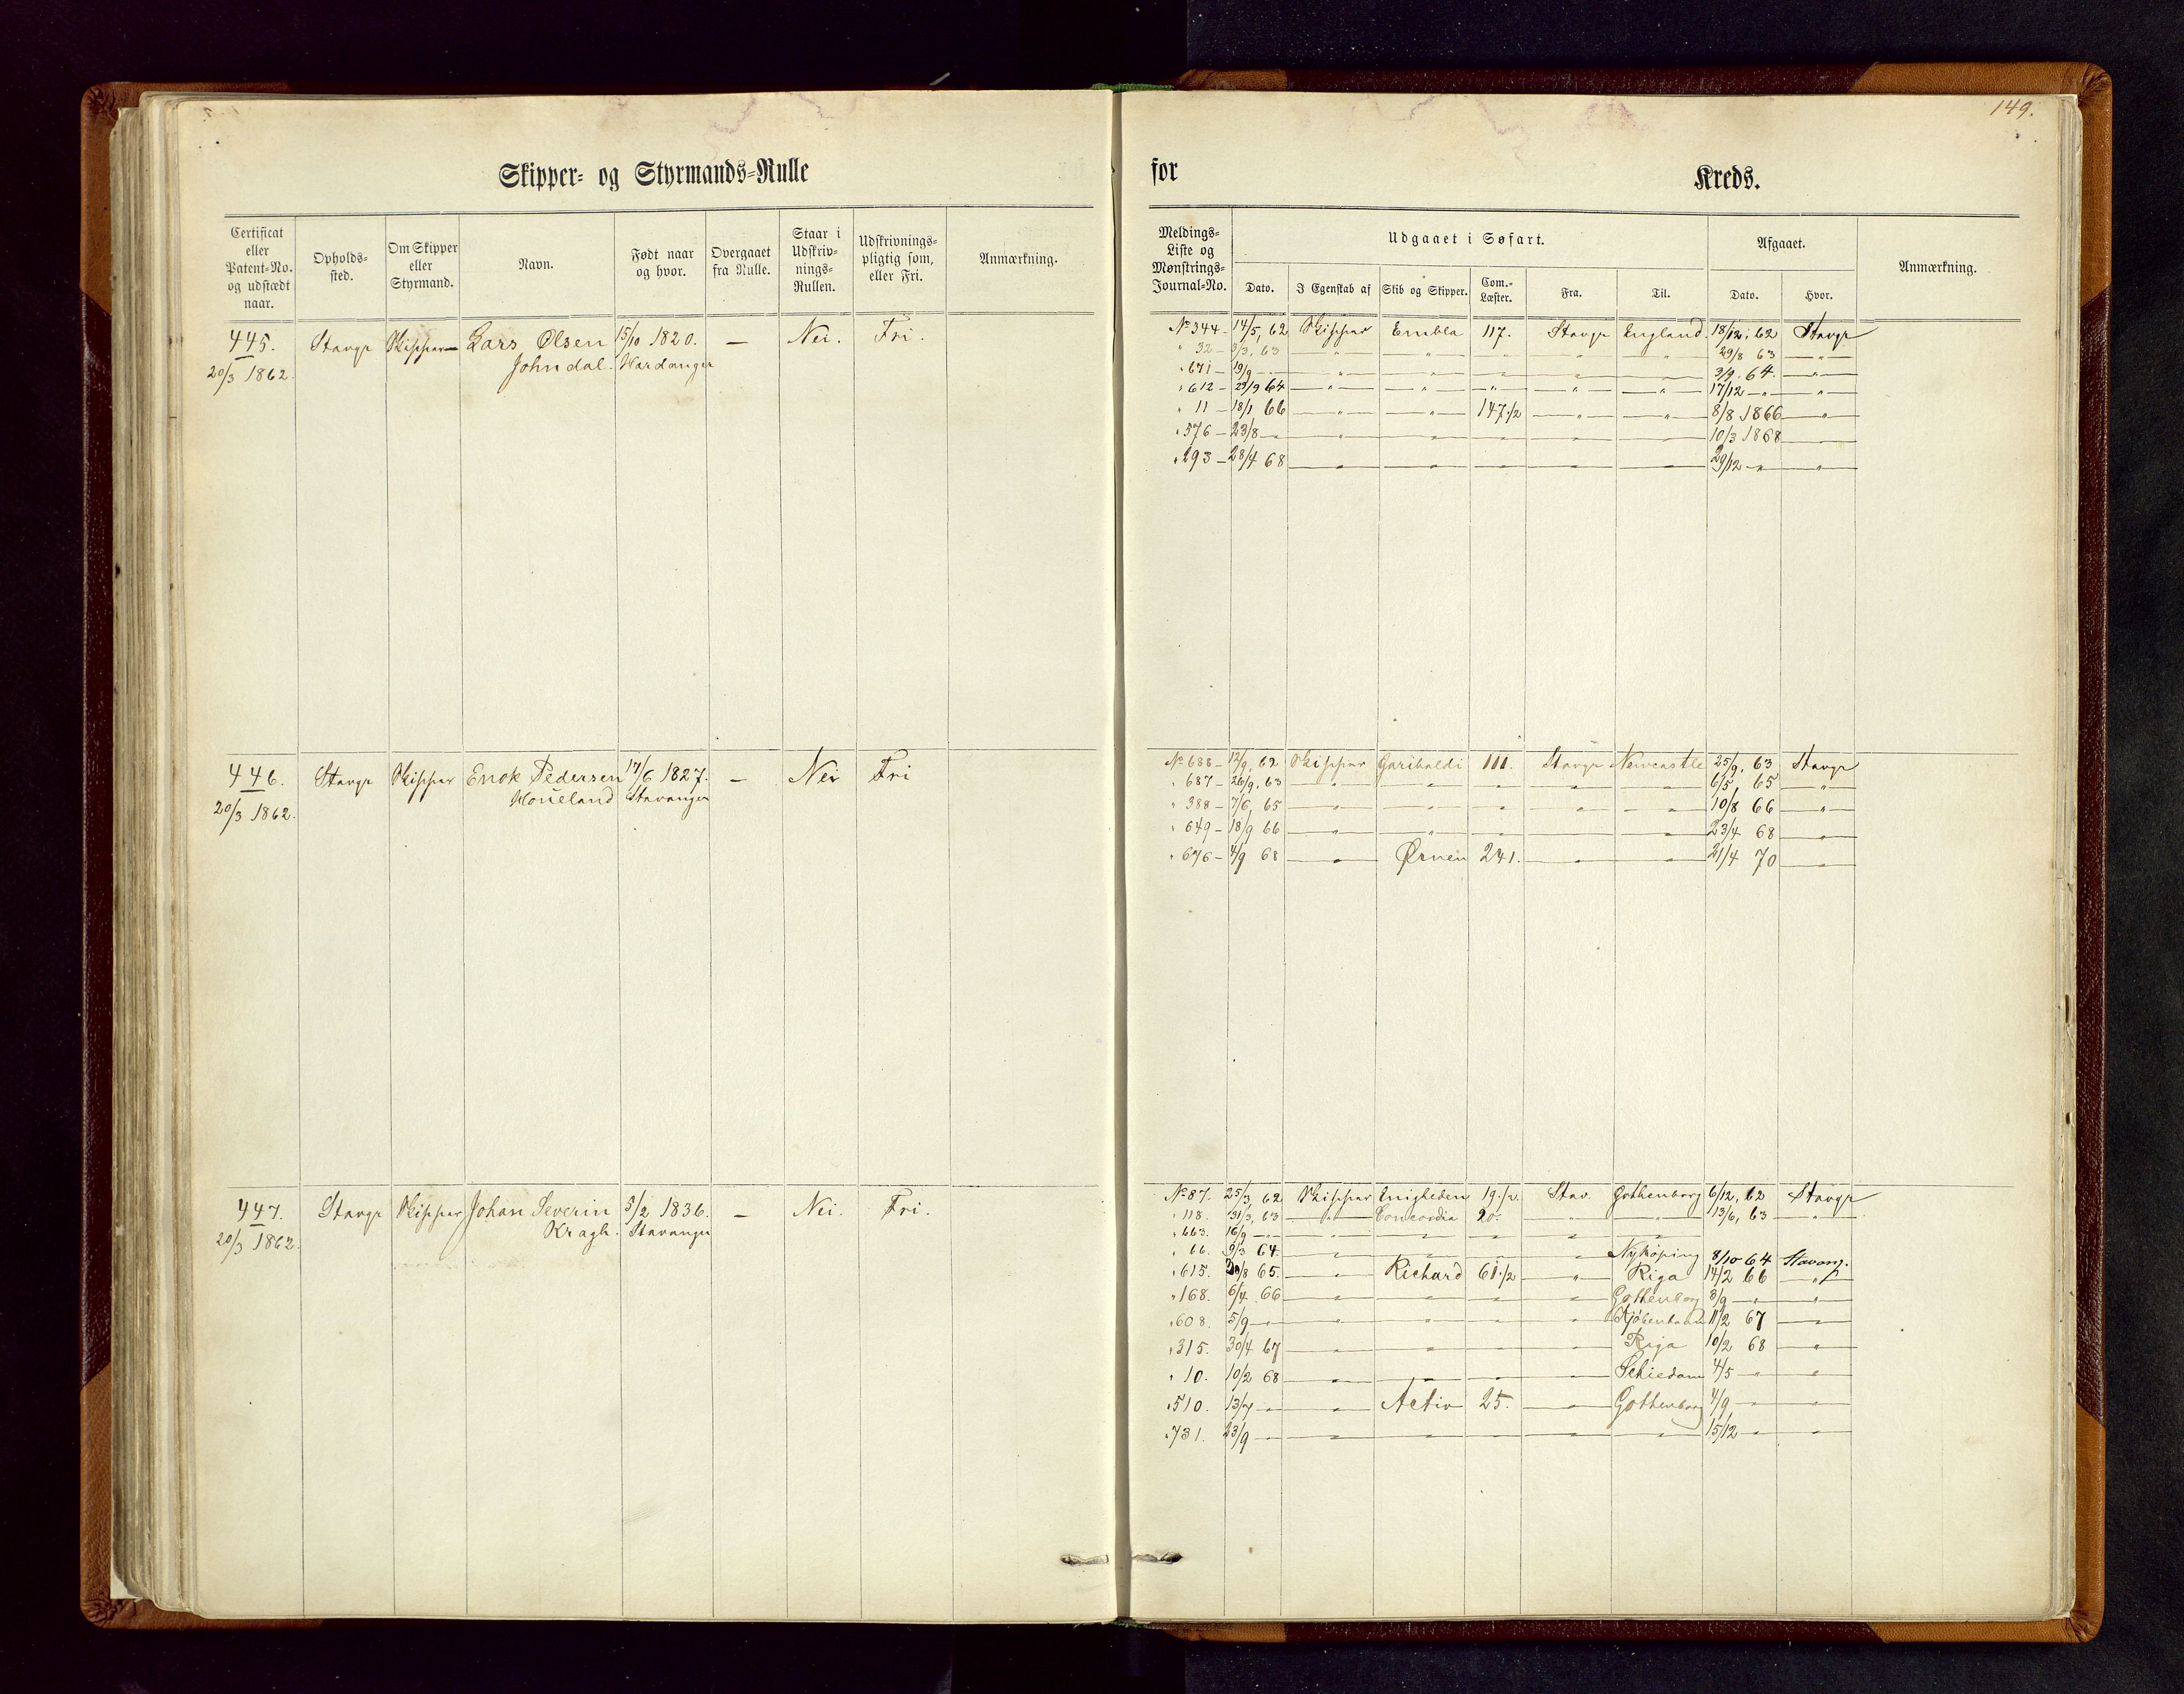 149.
Skipper- og Styrmands-Rulle for Kreds.
Certificat eller Patent-No. og udstædt naar.
Opholds-sted.
Om Skipper eller Styrmand.
Navn.
Født naar og hvor.
Overgaaet fra Rulle.
Staar i Udskriv-nings-Rullen.
Udskrivnings-pligtig som, eller Fri.
Anmærkning.
Meldings-Liste og Mønstrings-Journal-No.
Udgaaet i Søfart.
Dato. I Egenskab af Skib og Skipper. Com.-Læster. Fra. Til.
Afgaaet.
Dato. Hvor.
Anmærkning.
445. Stavgr Skipper Lars Olsen 15/10 1820. — Nei. Fri.
20/3 1862. Johndal. Hardanger
No 344 – 14/5, 62 Skipper Embla 117. Stavgr England. 18/12, 62 Stavgr
" 32 – 3/3, 63 " " " " " 29/8 63 "
" 671 – 19/9 – " " " " " 3/9. 64. "
" 612 – 29/9 64 " " " " " 17/12 – " "
" 11 – 18/1 66 " " 147 1/2 " " 8/8 1866 "
" 576 – 23/8 – " " " " " " 10/3 1868
" 293 – 28/4 68 " " " " " 29/12 – " "
446. Stavgr Skipper Enok Pedersen 17/6 1827. — Nei Fri
20/3 1862. Houeland Stavanger
No 688 – 12/9, 62 Skipper Garibaldi 111. Stavgr Newcastle 25/9, 63 Stavgr
" 687 – 26/9, 63 " " " " " 6/5, 65 "
" 388 – 7/6, 65 " " " " " 10/8 66 "
" 649 – 18/9 66 " " " " " 23/4 68 "
" 676 – 4/9 68 " Ørnen 241. " " 21/4 70 "
447. Stavgr Skipper Johan Severin 5/2 1836. — Nei. Fri.
20/3 1862. Kragh. Stavanger
No 87. 25/3 62 Skipper Enigheden 19 1/2. Stav. Gothenborg 6/12, 62 Stavgr
" 118. 31/3, 63 " Concordia 20. " " 13/6, 63 "
" 663. 16/9 – " " " " " "
" 66. 9/3 64. " " " " Nyköping 8/10 64 Stavang.
" 615. 30/8 65. " Richard 61 1/2 " Riga 14/2 66 "
" 168. 6/4 66 " " " " Gothenborg 3/9 – " "
" 608. 5/9 – " " " " " Kjøbenhavn 11/2 67 "
" 315. 30/4 67 " " " " Riga 10/2 68 "
" 10. 10/2 68 " " " " Schiedam 4/5 – " "
" 510. 13/7 – " " Activ 25. " Gothenborg 4/9 – " "
" 731. 23/9 – " " " " " " 15/12 – " "